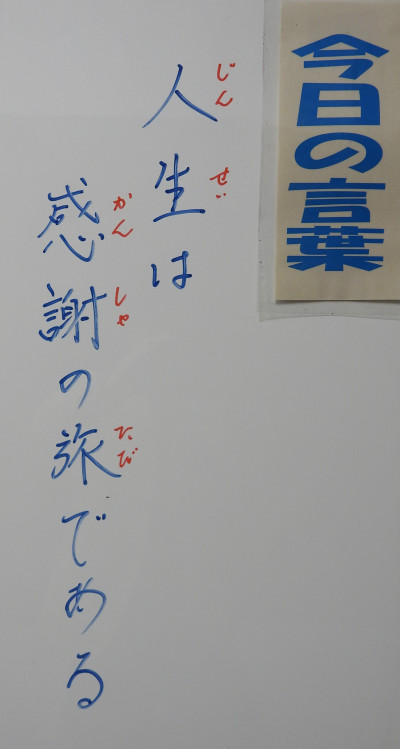 今日の言葉
じんせい
人生は
かんしゃ たび
感謝の旅である